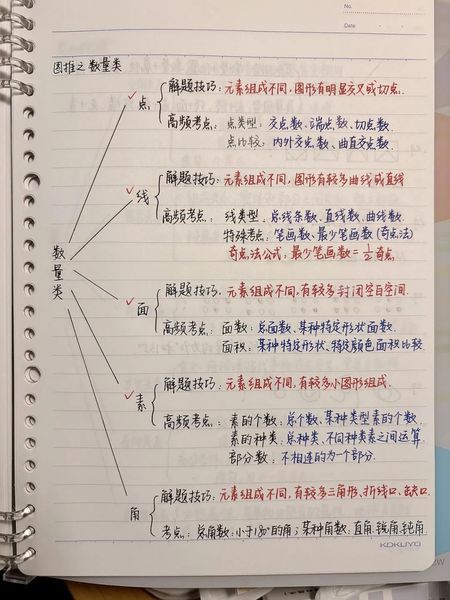 No.
Date
图推之数量类
数量类
点
解题技巧：元素组成不同，图形有明显交叉或切点.
高频考点：点类型：交点数、端点数、切点数.
点比较：内外交点数、曲直交点数.
线
解题技巧：元素组成不同，图形有较多曲线或直线
高频考点：线类型：总线条数、直线数、曲线数.
特殊考点：笔画数、最少笔画数（奇点法）
奇点法公式：最少笔画数=1/2奇点
面
解题技巧：元素组成不同，有较多封闭空白空间.
高频考点：面数：总面数、某种特定形状面数.
面积：某种特定形状、特定颜色面积比较.
素
解题技巧：元素组成不同，有较多小图形组成.
高频考点：素的个数：总个数、某种类型素的个数.
素的种类：总种类、不同种类素之间运算.
部分数：不相连的为一个部分.
角
解题技巧：元素组成不同，有较多三角形、折线口、缺口.
考点：总角数：小于180°的角；某种角数：直角.锐角.钝角
KOKUYO